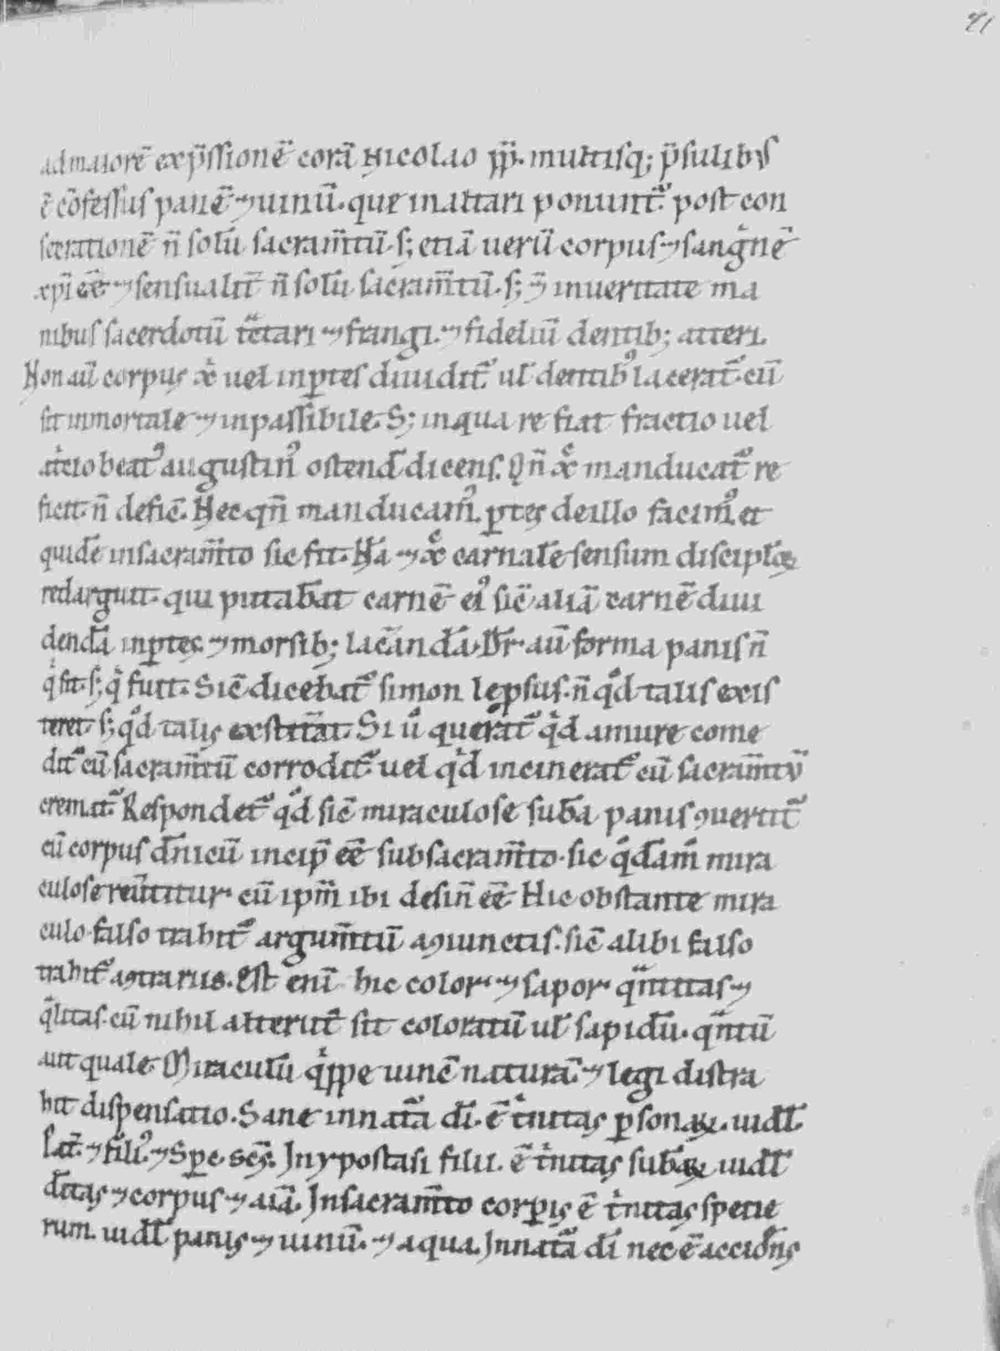 41
ad maiorē exp̄ssionē corā Nicolao pp̄. multisq; p̄sulib;
ē cōfessus panē ⁊ uinū. que in altari ponunt᷑ post con
secrationē n̄ solū sacram̄tū. s; etiā uerū corpus ⁊ sangnē
xp̄i ēē ⁊ sensualit̄ n̄ solū sacram̄tū. s; ⁊ in ueritate ma
nibus sacerdotū t̄ctari ⁊ frangi. ⁊ fideliū dentib; atteri.
Non aū corpus xͥ uel in ꝑtes diuidit᷑ ul̄ dentibꝰ lacerat᷑. cū
sit inmortale ⁊ inpassibile. S; in qua re fiat fractio uel
beatꝰ augustinꝰ ostend̄ dicens. Qn̄ manducat᷑ re
ficit. n̄ defic̄. Nec qn̄ manducamꝰ. ꝑtes de illo facimꝰ et
quidē in sacram̄to sic fit. ⁊ carnalē sensum discipl̄oꝝ
redarguit. qui putab̄at carnē eiꝰ sic̄ aliā carnē diui
dendā in ꝑtes ⁊ morsib; lac̄andā. Dr̄ aū forma panis n̄
qͥ sit. s; qͥ fuit. Sic̄ dicebat᷑ simon lep̄sus. n̄ qͦd talis exis
teret s; qͦd talis exstit̄at. Si ū querat᷑ qͥd a mure come
dit᷑ cū sacram̄tū corrodit᷑ uel qͥd incinerat᷑ cū sacram̄tū
crem̄at᷑. Respondet᷑ qͦd sic̄ miraculose sub̄a panis ꝯuertit᷑
cū corpus dn̄icū incip̄ ēē sub sacram̄to. sic qͦdām mira
culose reū̄titur. cū ip̄m ibi desin̄ ēē. Hic obstante mira
culo. falso trahit᷑ argum̄tū a ꝯiunctis. sic̄ alibi falso
trahit᷑ a ꝯtrariis. Est enī hic color. ⁊ sapor. qͣntitas ⁊
qͣlitas. cū nihil alterut̄ sit coloratū ul̄ sapidū. qͣntū
aut quale. Miraculū qͥppe uinc̄ naturā. ⁊ legi distra
hit dispensatio. Sane in natā dī. ē tͥnitas ꝑsonaꝝ. uidl̄
⁊ filiꝰ. ⁊ spc̄ sc̄s. In ypostasi filii. ē tͥnitas sub̄aꝝ uidl̄
dēitas ⁊ corpus ⁊ aīa. In sacram̄to corꝑis ē tͥnitas spetie
rum. uidl̄ panis ⁊ uinū. ⁊ aqua. In natā dī nec ē accidn̄s